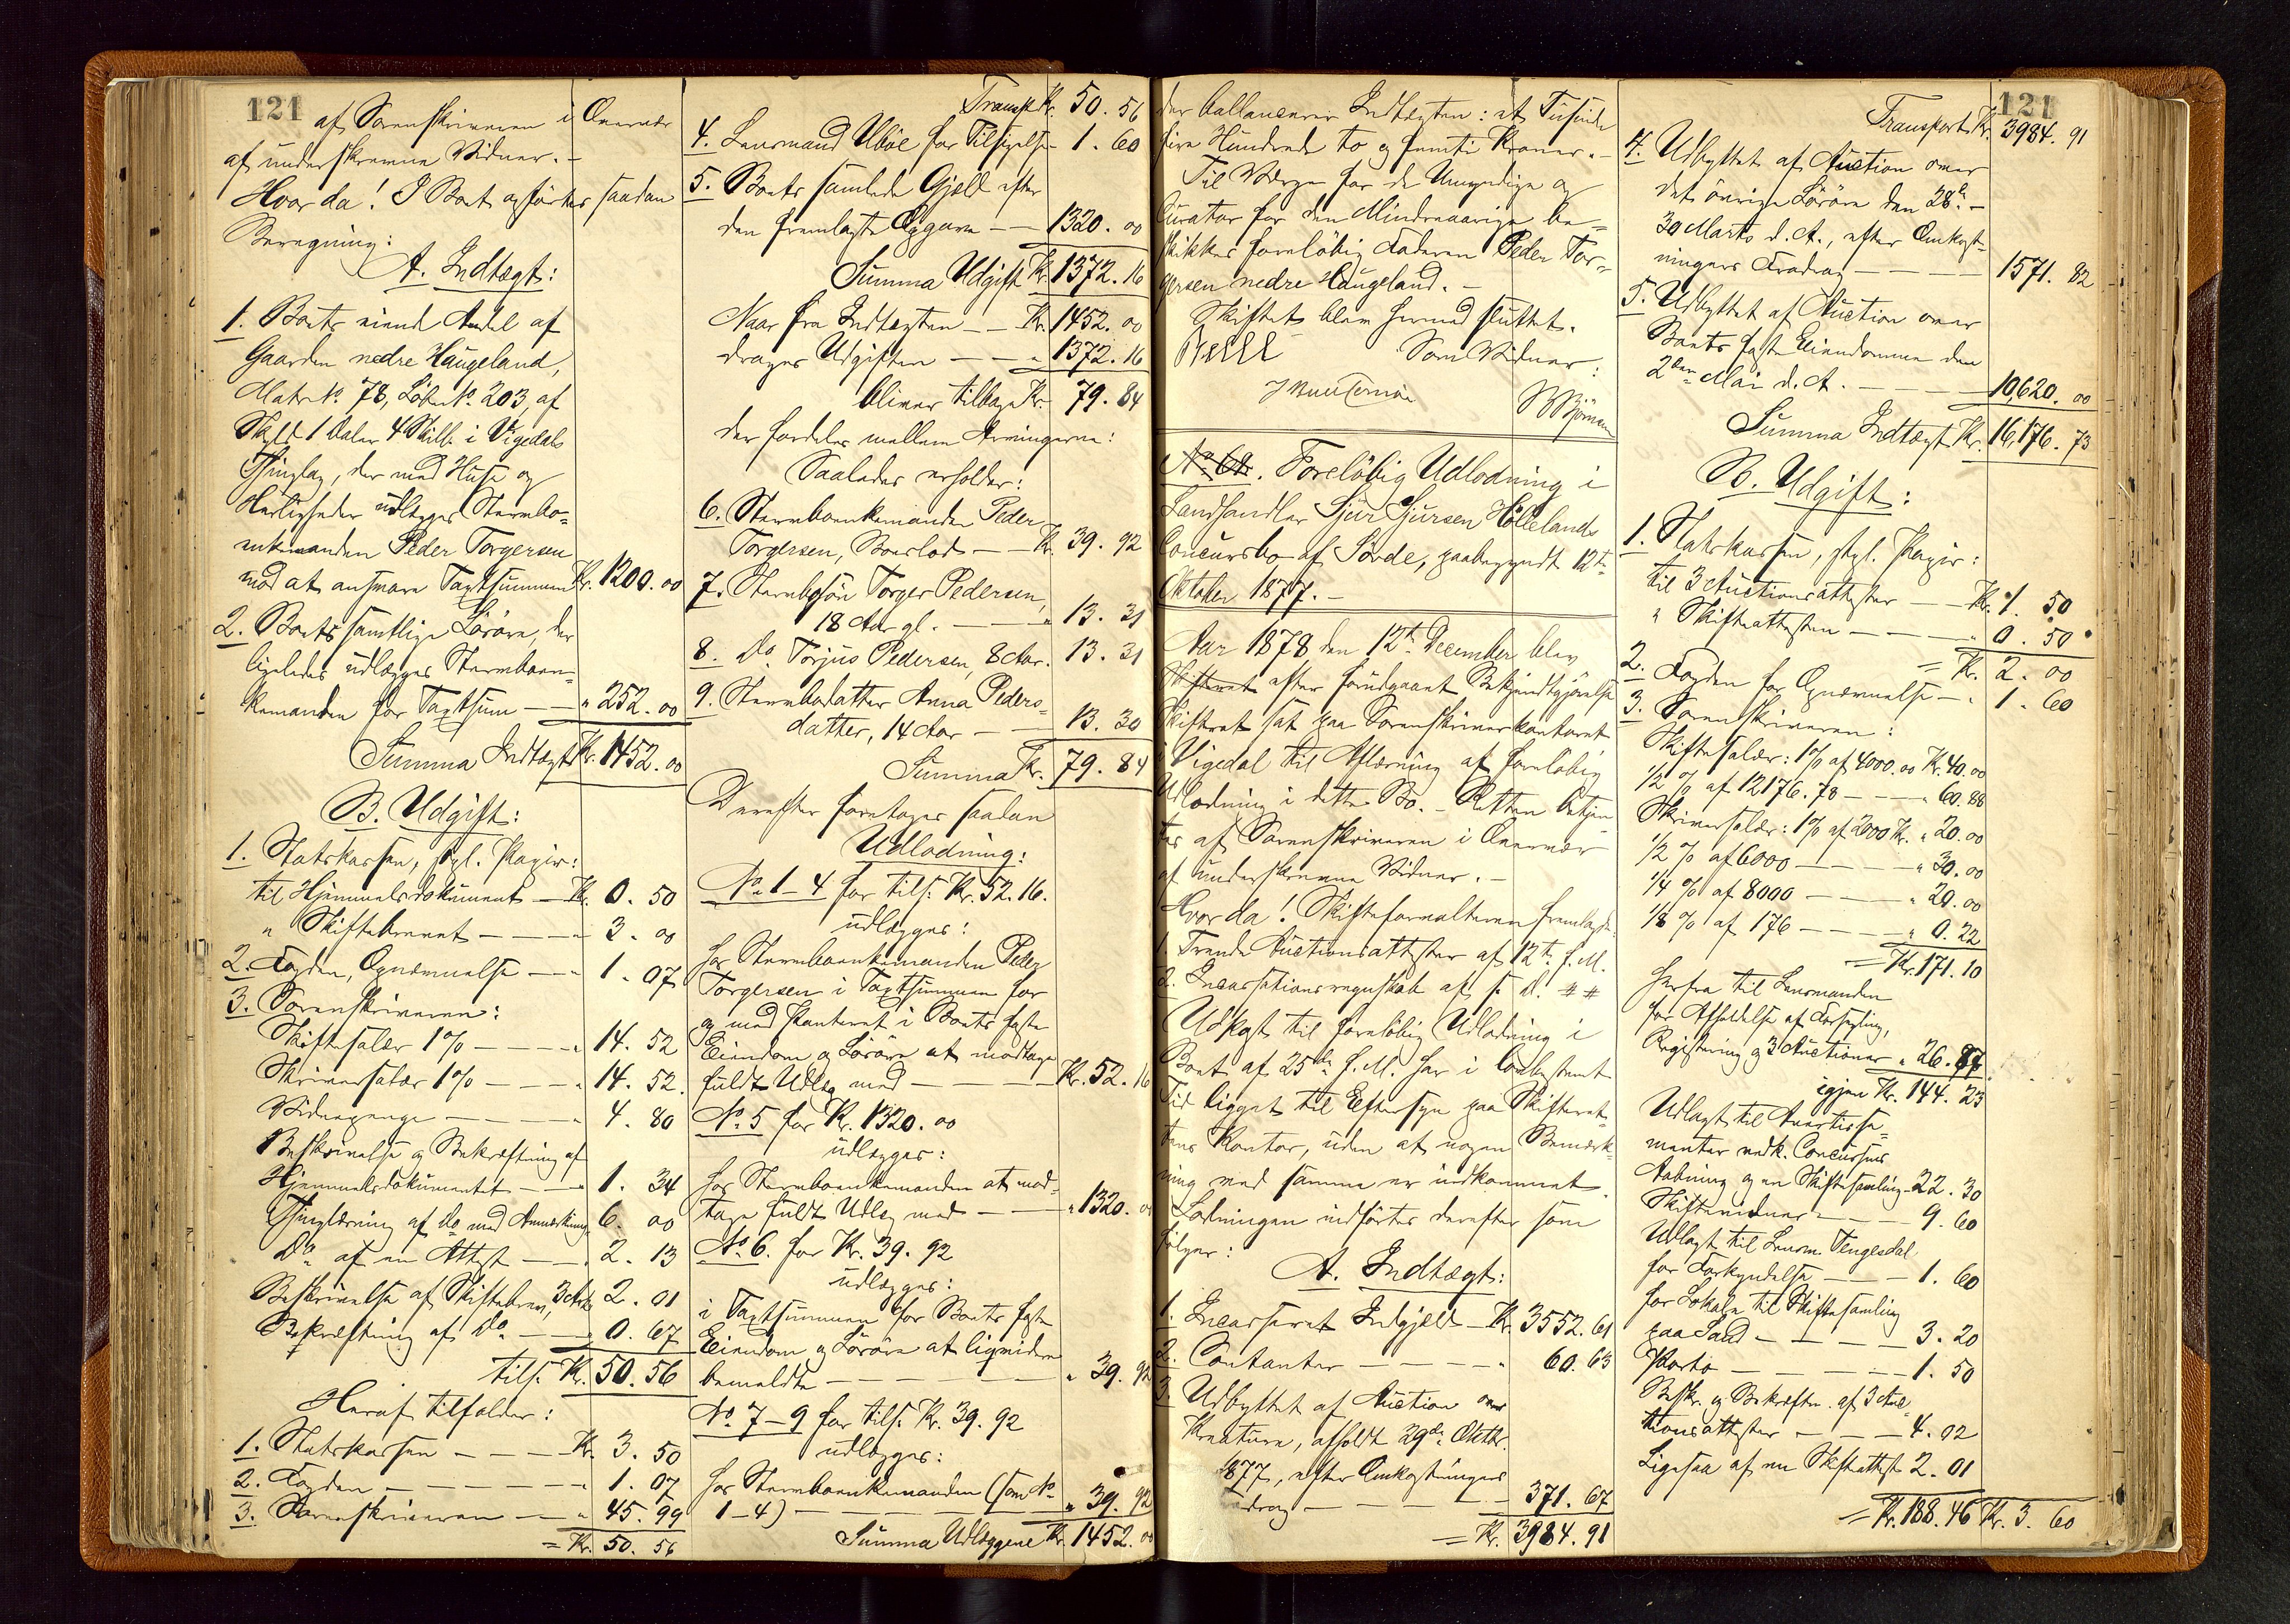 121
af Sorenskriveren i Overvær
af underskrevne Vidner. –
Hvorda! I Boet opførtes saadan
Beregning:
A. Indtægt:
1. Boets eiende Andel af
Gaarden nedre Haugeland,
Matr. No. 78, Løbe No. 203, af
Skyld 1 Daler 4 Skill. i Vigedals
Thinglag, der med Huse og
Herligheder udlægges Stervbo-
enkemanden Peder Torgersen
mod at ansvare Taxtsummen Kr. 1200. 00
2. Boets samtlige Løsøre, der
ligeledes udlægges Stervboen-
kemanden for Taxtsum — " 252. 00
Summa Indtægt Kr. 1452. 00
B. Udgift:
1. Statskassen, stpl. Papir:
til Hjemmelsdokument — Kr. 0. 50
" Skiftebrevet — " 3. 00
2. Fogden, Opnævnelse — " 1. 07
3. Sorenskriveren:
Skiftesalær 1% — " 14. 52
Skriversalær 1% — " 14. 52.
Vidnepenge — " 4. 80
Beskrivelse og Bekræftning af
Hjemmelsdokumentet — " 1. 34
Thinglæsning af do med Anmærkning 6. 00
Do af en Attest — " 2. 13
Beskrivelse af Skiftebrev, 3 Ark 2. 01
Bekræftning af do — " 0. 67
tils. Kr. 50. 56
Heraf tilfalder:
1. Statskassen — Kr. 3. 50
2. Fogden — " 1. 07
3. Sorenskriveren — " 45. 99
= Kr. 50. 56
Transpt. Kr. 50. 56
4. Lensmand Ubøe for Tilsigelse 1. 60
5. Boets samlede Gjeld efter
den fremlagte Opgave — 1320. 00
Summa Udgift Kr. 1372. 16
Naar fra Indtægten — Kr. 1452. 00
drages Udgiften — " 1372. 16
bliver tilbage Kr. 79. 84
der fordeles mellem Arvingerne:
Saaledes erholder:
6. Stervboenkemanden Peder
Torgersen, Boeslod — Kr. 39. 92
7. Stervbosøn Torger Pedersen,
18 Aar gl. — " 13. 31
8. Do Torjus Pedersen, 8 Aar. 13. 31
9. Stervbodatter Anna Peders-
datter, 14 Aar — 13. 30
Summa Kr. 79. 84
Derefter foretages saadan
Udlodning:
No. 1–4 for tils. Kr. 52. 16.
udlægges:
hos Stervboenkemanden Peder
Torgersen i Taxtsummen for
og med Panteret i Boets faste
Eiendom og Løsøre at modtage
fuldt Udlæg med — Kr. 52. 16
No. 5 for Kr. 1320. 00
udlægges:
hos Stervboenkemanden at mod-
tage fuldt Udlæg med — " 1320. 00
No. 6. for Kr. 39. 92
udlægges:
i Taxtsummen for Boets faste
Eiendom og Løsøre at liqvidere
bemeldte — " 39. 92
No. 7–9 for tils. Kr. 39. 92
udlægges:
hos Stervboenkemanden (som No.
1–4) — " 39. 92
Summa Udlæggene Kr. 1452. 00
der ballancerer Indtægten: et Tusinde
fire Hundrede to og femti Kroner. –
Til Værge for de Umyndige og
Curator for den Mindreaarige be-
skikkes foreløbig Faderen Peder Tor-
gersen nedre Haugeland. –
Skiftet blev hermed sluttet.
Som Vidner:
No. 62. Foreløbig Udlodning i
Landhandler Sjur Sjursen Hølleland
Concursbo af Søvde, paabegyndt 12te
Oktober 1877. –
Aar 1878 den 12te December blev
Skifteret efter forudgaaet Bekjendtgjørelse
Skifteret sat paa Sorenskriverkontoret
i Vigedal til Aflæsning af foreløbig
Udlodning i dette Bo. – Retten betjen-
tes af Sorenskriveren i Overvær
af underskrevne Vidner. –
Hvorda! Skifteforvalteren fremlagde:
1. Trende Auctionsattester af 12te f. M.
2. Incassationsregnskab af s. d. ##
Udkast til foreløbig Udlodning i
Boet af 25de f. M. har i lovbestemt
Tid ligget til Eftersyn paa Skifteret-
tens Kontor, uden at nogen Bemærk-
ning med samme er indkommet.
Lodningen indførtes derefter som
følger:
A. Indtægt:
1. Incasseret Indgjeld — Kr. 3552. 61
2. Contanter — " 60. 63
3. Udbyttet af Auction over
Kreature, afholdt 29de Oktbr.
1877, efter Omkostningers
Fradrag — 371. 67
= Kr. 3984. 91
121
Transport Kr. 3984. 91
4. Udbyttet af Auction over
det øvrige Løsøre den 28de –
30 Marts d. A., efter Omkost-
ningers Fradrag — 1571. 82
5. Udbyttet af Auction over
Boets faste Eiendomme den
2den Mai d. A. — 10,620. 00
Summa Indtægt Kr. 16,176. 73
B. Udgift:
1. Statskassen, stpl. Papir:
til 3 Auctionsattester — Kr. 1. 50
" Skifteattesten — " 0. 50
= Kr. 2. 00
2. Fogden for Opnævnelse — " 1. 60
3. Sorenskriveren:
Skiftesalær: 1% af 4000. 00 Kr. 40. 00
1/2 % af 12176. 73 — " 60. 88
Skriversalær: 1% af 2000 Kr. " 20. 00
1/2 % af 6000 — " 30. 00
1/4 % af 8000 — " 20. 00
1/8 % af 176 — " 0. 22
= Kr. 171. 10
herfra til Lensmanden
for Afholdelse af Forsegling,
Registrering og 3 Auctioner " 26. 87
igjen Kr. 144. 23
Udlagt til Avertisse-
menter vedk. Concursens
Aabning og en Skiftesamling 22. 30
Skiftevidner — 9. 60
Udlagt til Lensm. Tengesdal
for Forkyndelse — 1. 60
for Lokale til Skiftesamling
paa Sand — 3. 20
Porto — 1. 50
Beskr. og Bekræftn. af 3 Auc-
tionsattester — 4. 02
Ligesaa af en Skifteattest 2. 01
= Kr. 188. 46 Kr. 3. 60